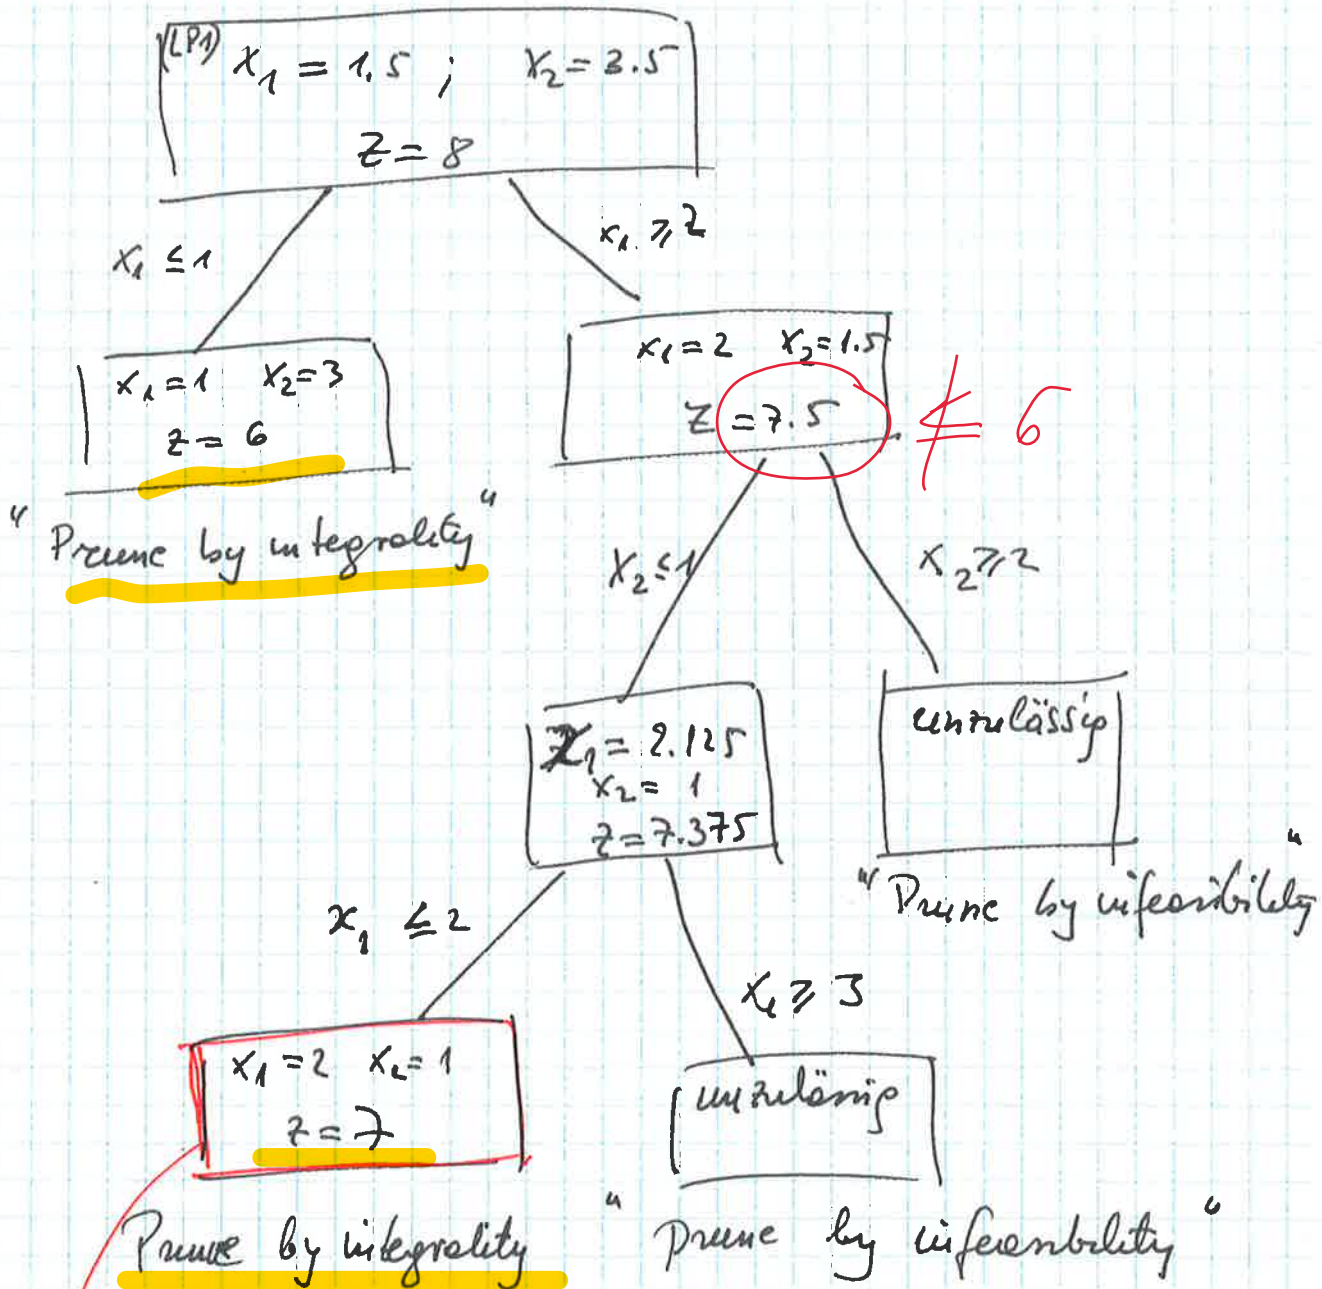 (LP1) x₁ = 1.5 ; x₂ = 3.5
z = 8
x₁ ≤ 1
x₁ ≥ 2
x₁ = 1 x₂ = 3
z = 6
"Prune by integrality"
x₁ = 2 x₂ = 1.5
z = 7.5 ≰ 6
x₂ ≤ 1
x₂ ≥ 2
x₁ = 2.125
x₂ = 1
z = 7.375
unzulässig
"Prune by infeasibility"
x₁ ≤ 2
x₁ ≥ 3
x₁ = 2 x₂ = 1
z = 7
Prune by integrality
unzulässig
"Prune by infeasibility"